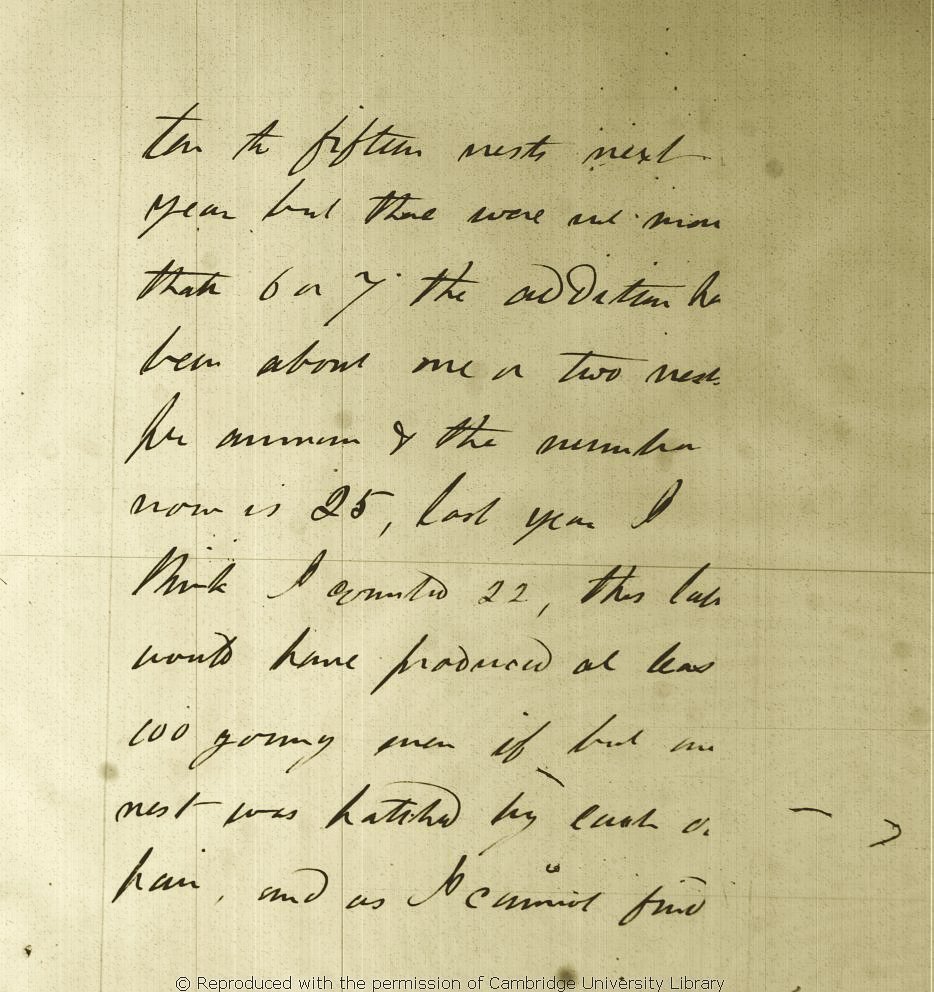 ten to fifteen nests next
year but there were not more
than 6 or 7 the addition ha
been about one or two nests
per annum & the number
now is 25, last year I
think I counted 22, this
would have produced at leas
100 young even if but one
nest was hatched by each
pair, and as I cannot find
© Reproduced with the permission of Cambridge University Library